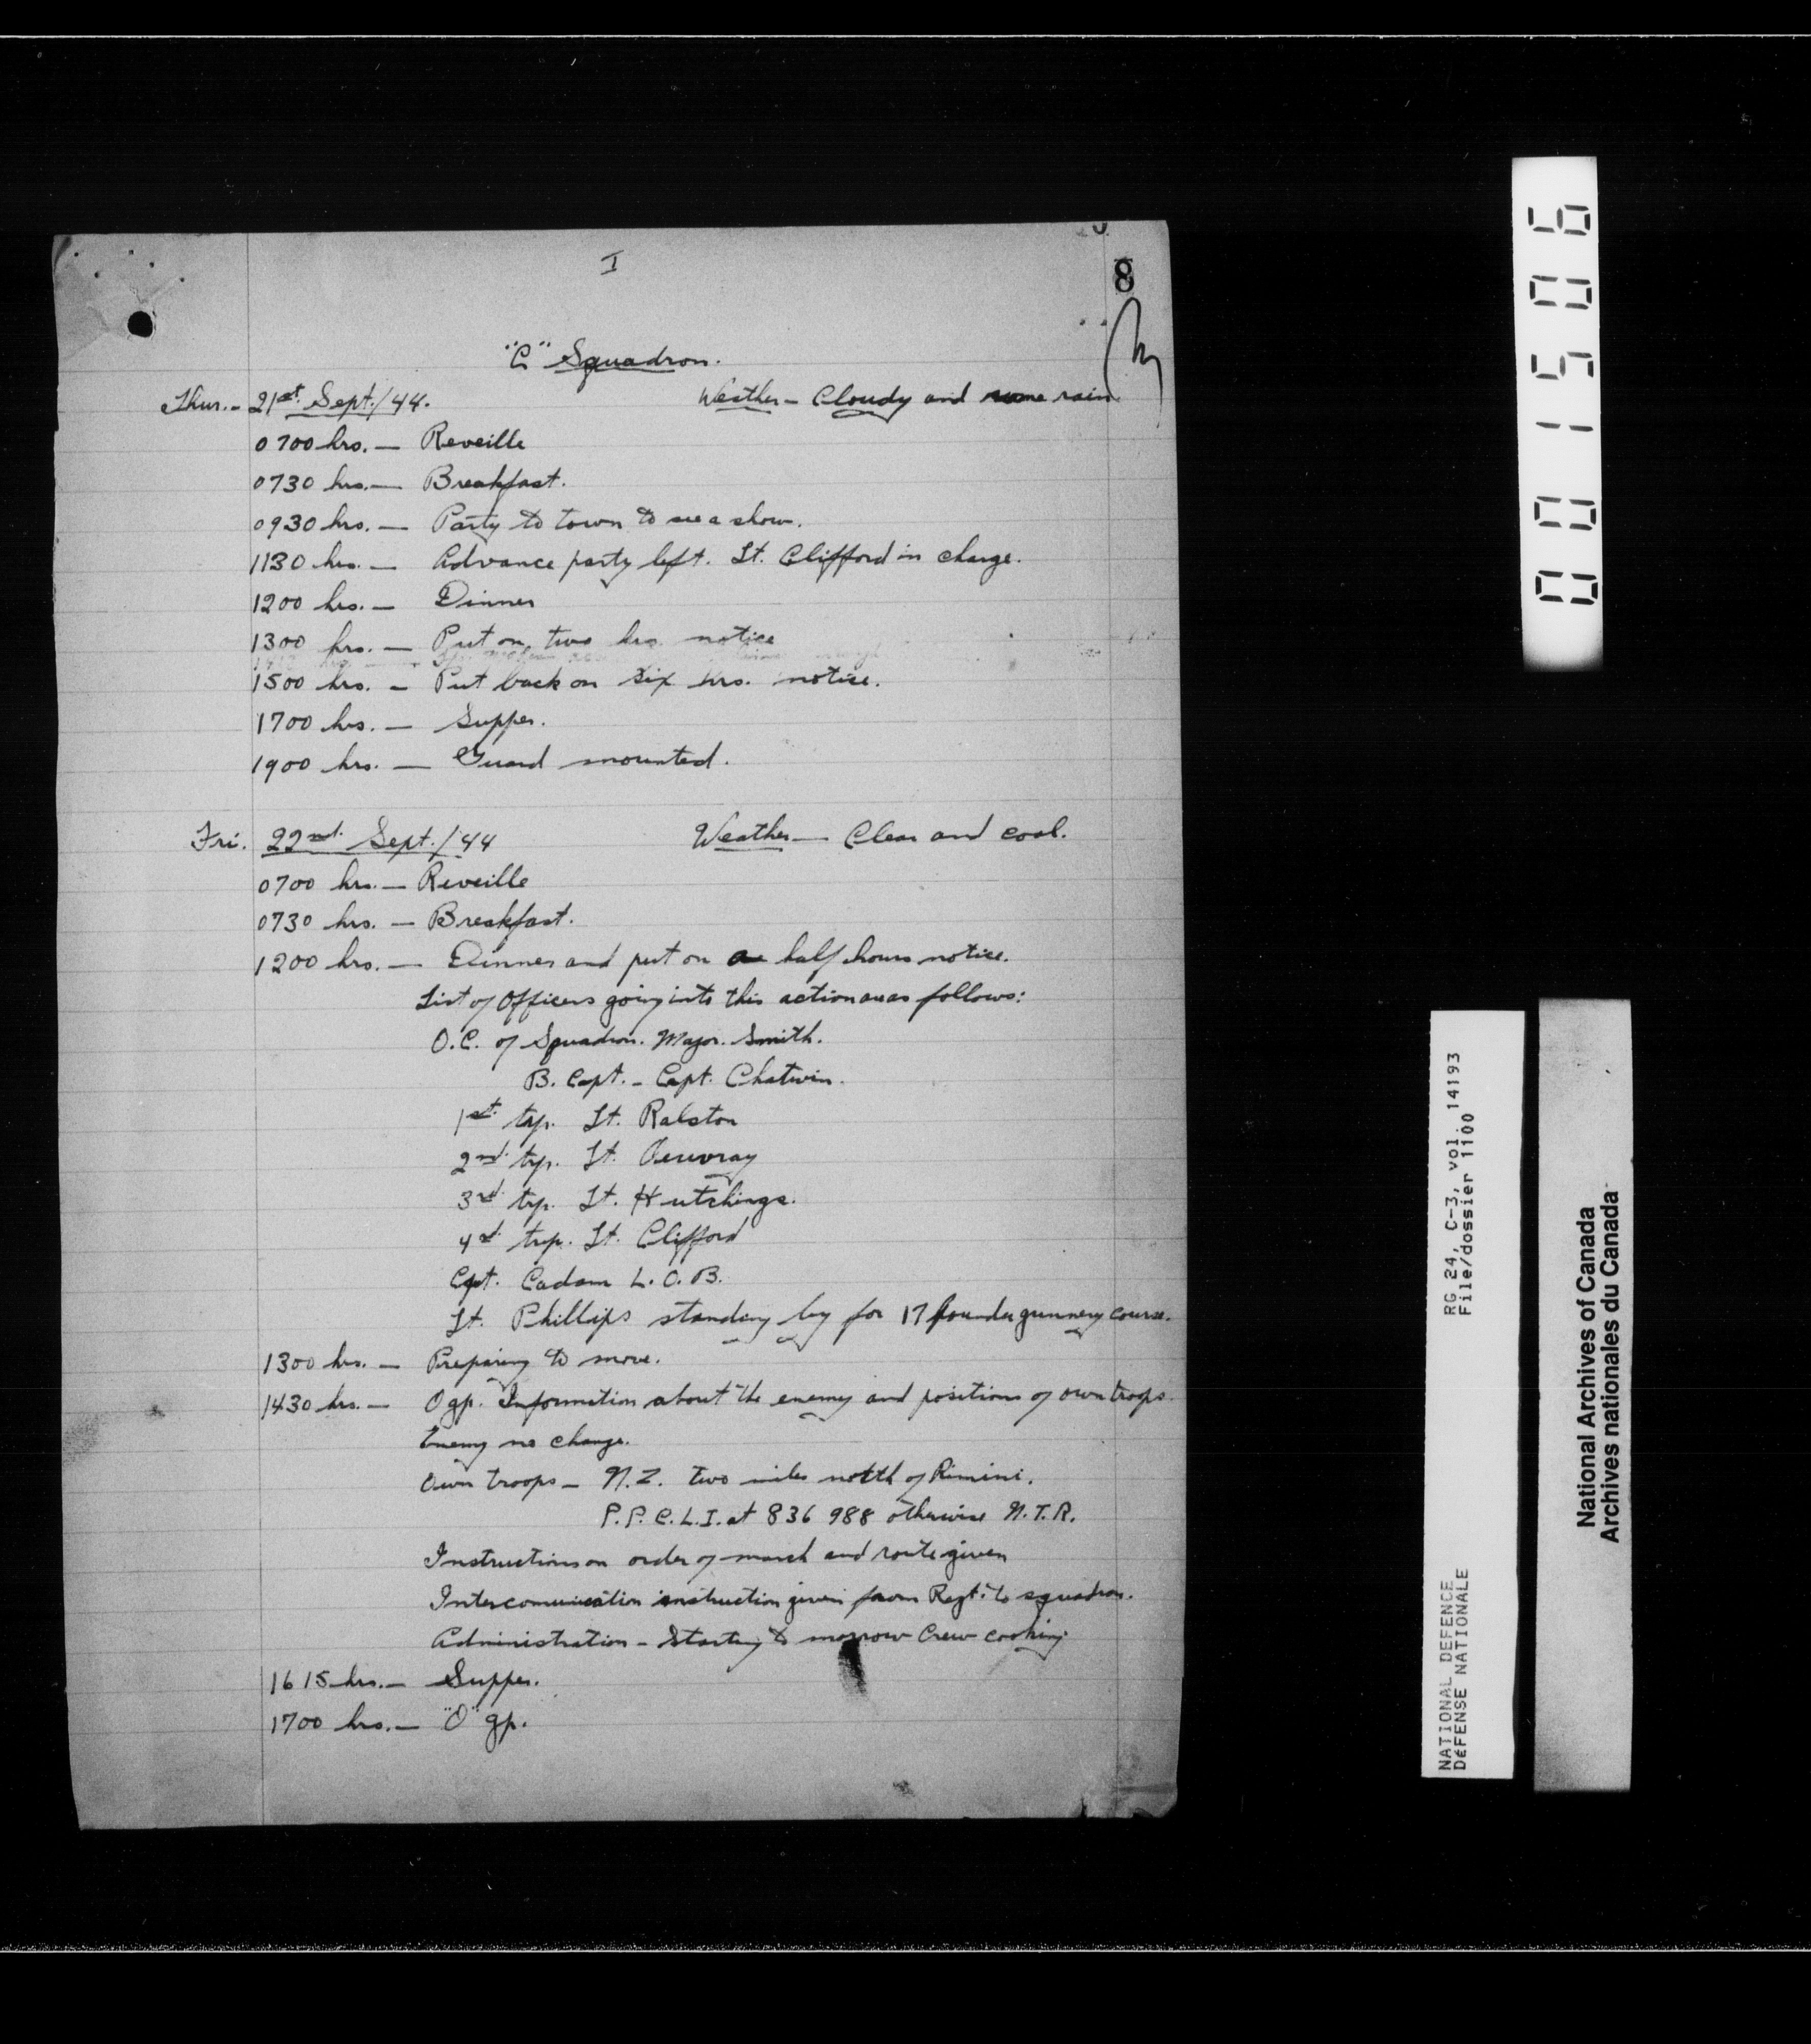 I
8
"C" Squadron.
Thur. - 21st Sept./44. Weather - Cloudy and some rain.
0700 hrs. - Reveille
0730 hrs. - Breakfast.
0930 hrs. - Party to town to see a show.
1130 hrs. - Advance party left. Lt. Clifford in charge.
1200 hrs. - Dinner
1300 hrs. - Put on two hrs. notice
1500 hrs. - Put back on six hrs. notice.
1700 hrs. - Supper.
1900 hrs. - Guard mounted.
Fri. 22nd Sept./44 Weather - Clear and cool.
0700 hrs. - Reveille
0730 hrs. - Breakfast.
1200 hrs. - Dinner and put on half hours notice.
List of Officers going into this action are as follows:
O.C. of Squadron. Major. Smith.
B. Capt. - Capt. Chatwin.
1st trp. Lt. Ralston
2nd trp. Lt.
3rd trp. Lt. Hutchings.
4th trp. Lt. Clifford
Cpt. Cadam L.O.B.
Lt. Phillips standing by for 17 pounder gunnery course.
1300 hrs. - Preparing to move.
1430 hrs. - O gp. Information about the enemy and positions of own troops.
Enemy no change.
Own troops - N.Z. two miles north of Rimini.
P.P.C.L.I. at 836 988 otherwise N.T.R.
Instructions on order of march and route given
Intercomunication instruction given from Regt. to squadron.
Administration - Starting to morrow Crew cooking
1615 hrs. - Supper.
1700 hrs. - "O" gp.
0001506
RG 24, C-3, vol. 14193
File/dossier 1100
NATIONAL DEFENCE
DéFENSE NATIONALE
National Archives of Canada
Archives nationales du Canada